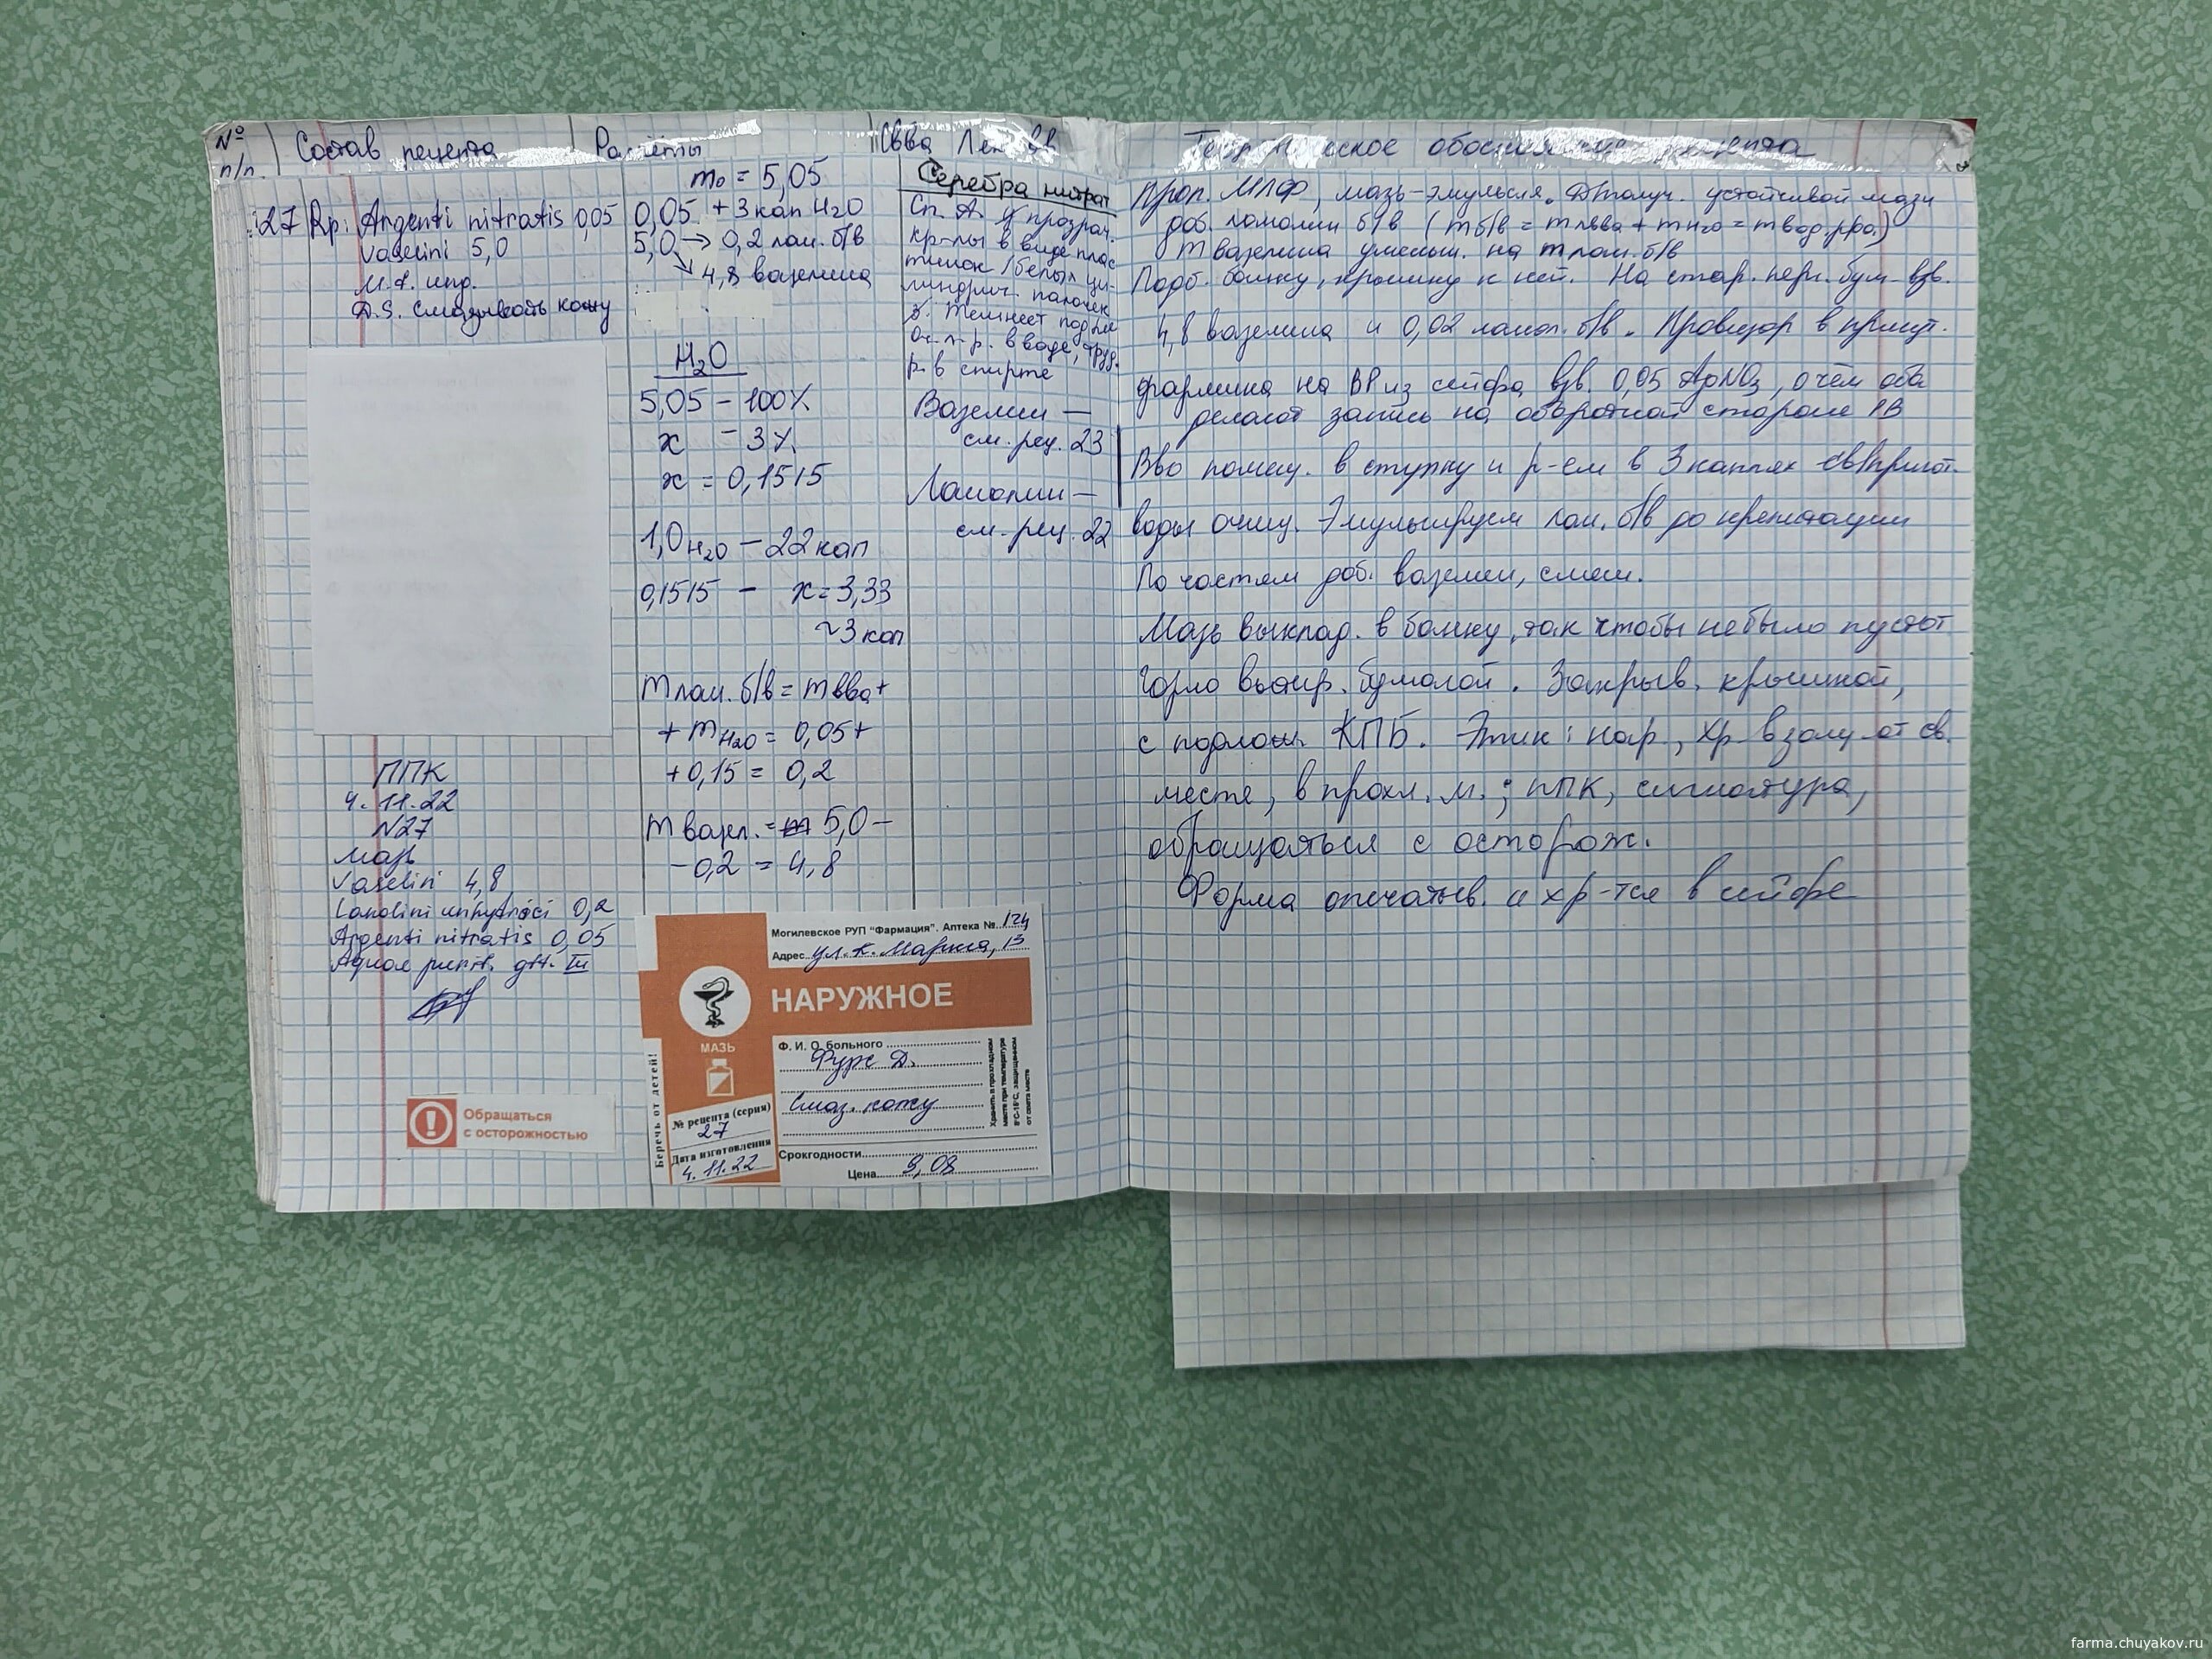 №
п/п
Состав рецепта
Расчёты
Св-ва Лек. в-в
27 Rp: Argenti nitratis 0,05
Vaselini 5,0
M.f. ung.
D.S. Смазывать кожу
ППК
4.11.22
N27
Мазь
Vaselini 4,8
Lanolini anhydrici 0,2
Argenti nitratis 0,05
Aquae purif. gtt. III
Обращаться
с осторожностью
m₀ = 5,05
0,05 + 3 кап H₂O
5,0 → 0,2 лан. б/в
↘ 4,8 вазелина
H₂O
5,05 – 100%
x – 3%
x = 0,1515
1,0 H₂O – 22 кап
0,1515 – x = 3,33
~3 кап
m лан. б/в = m вва +
+ m H₂O = 0,05 +
+ 0,15 = 0,2
m вазел. = 5,0 –
– 0,2 = 4,8
Серебра нитрат
Сп. А. прозрач.
кр-лы в виде плас
тинок / белых ци-
линдрич. палочек
Темнеет под
Оч. л. р. в воде, труд.
р. в спирте
Вазелин –
см. рец. 23
Ланолин –
см. рец. 22
Могилевское РУП "Фармация". Аптека № 124
Адрес ул. К. Маркса, 13
НАРУЖНОЕ
МАЗЬ
Беречь от детей!
№ рецепта (серия)
27
Дата изготовления
4.11.22
Ф. И. О. больного
Фурс Д.
Смаз. кожу
Срок годности
Цена 9,08
Хранить в прохладном
месте при температуре
8°С-15°С, защищенном
от света месте
обоснование рецепта
Проп. МЛФ, мазь-эмульсия. Дполуч. устойчивой мази
доб. ланолин б/в (m б/в = m лвва + m H₂O = m вод. р-ра)
m вазелина уменьш. на m лан. б/в
Подб. банку, крышку к ней. На стар. перг. бум. взв.
4,8 вазелина и 0,02 ланол. б/в. Провизор в присут.
фармац-а на ВР из сейфа взв. 0,05 AgNO₃, о чём оба
делают запись на оборотной стороне РВ
Вво помещ. в ступку и р-ем в 3 каплях св/пригот.
воды очищ. Эмульгируем лан. б/в до крепитации
По частям доб. вазелин, смеш.
Мазь выклад. в банку, так чтобы не было пустот
Горло вытир. бумагой. Закрыв. крышкой,
с подлож. КПБ. Этик: нар, Хр. в защ. от св.
месте, в прохл. м.; ППК, сигнатура,
обращаться с осторож.
Форма опечатыв. и хр-тся в сейфе
farma.chuyakov.ru